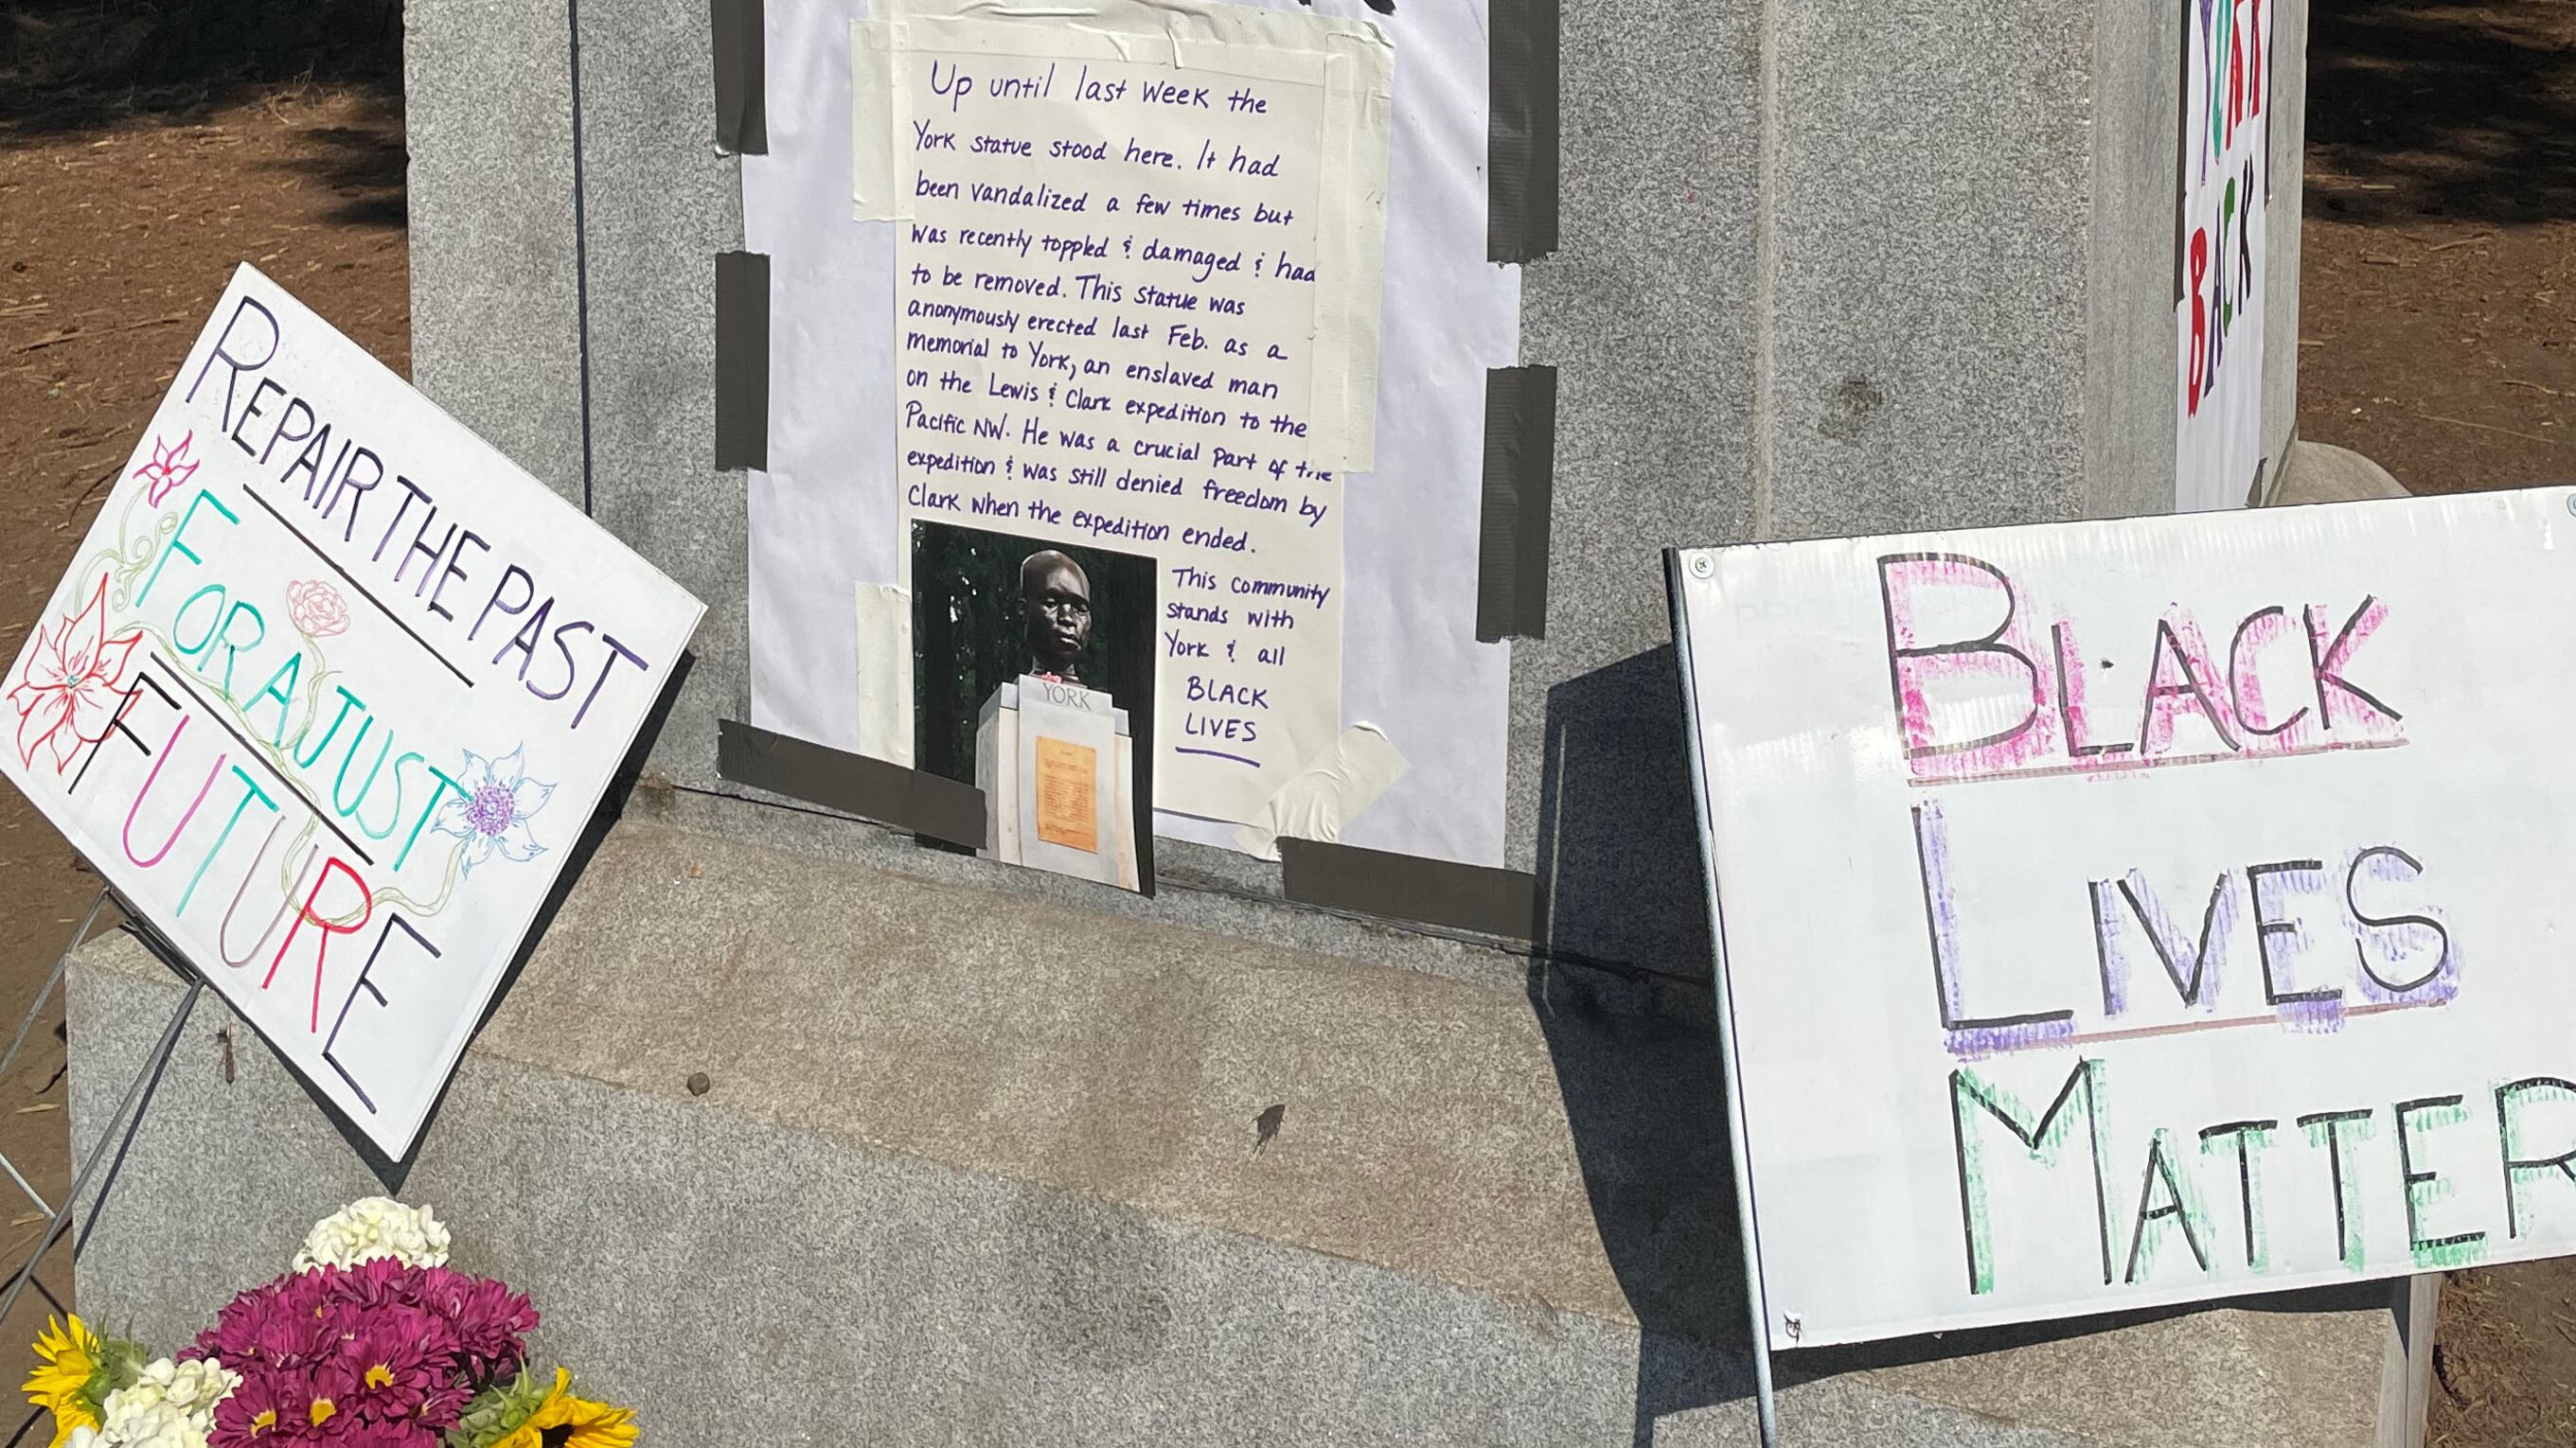 Up until last week the
York statue stood here. It had
been vandalized a few times but
was recently toppled & damaged & had
to be removed. This statue was
anonymously erected last Feb. as a
memorial to York, an enslaved man
on the Lewis & Clark expedition to the
Pacific NW. He was a crucial part of the
expedition & was still denied freedom by
Clark when the expedition ended.
This community
stands with
York & all
BLACK
LIVES
YORK
REPAIR THE PAST
FOR A JUST
FUTURE
BLACK
LIVES
MATTER
YORK
BACK